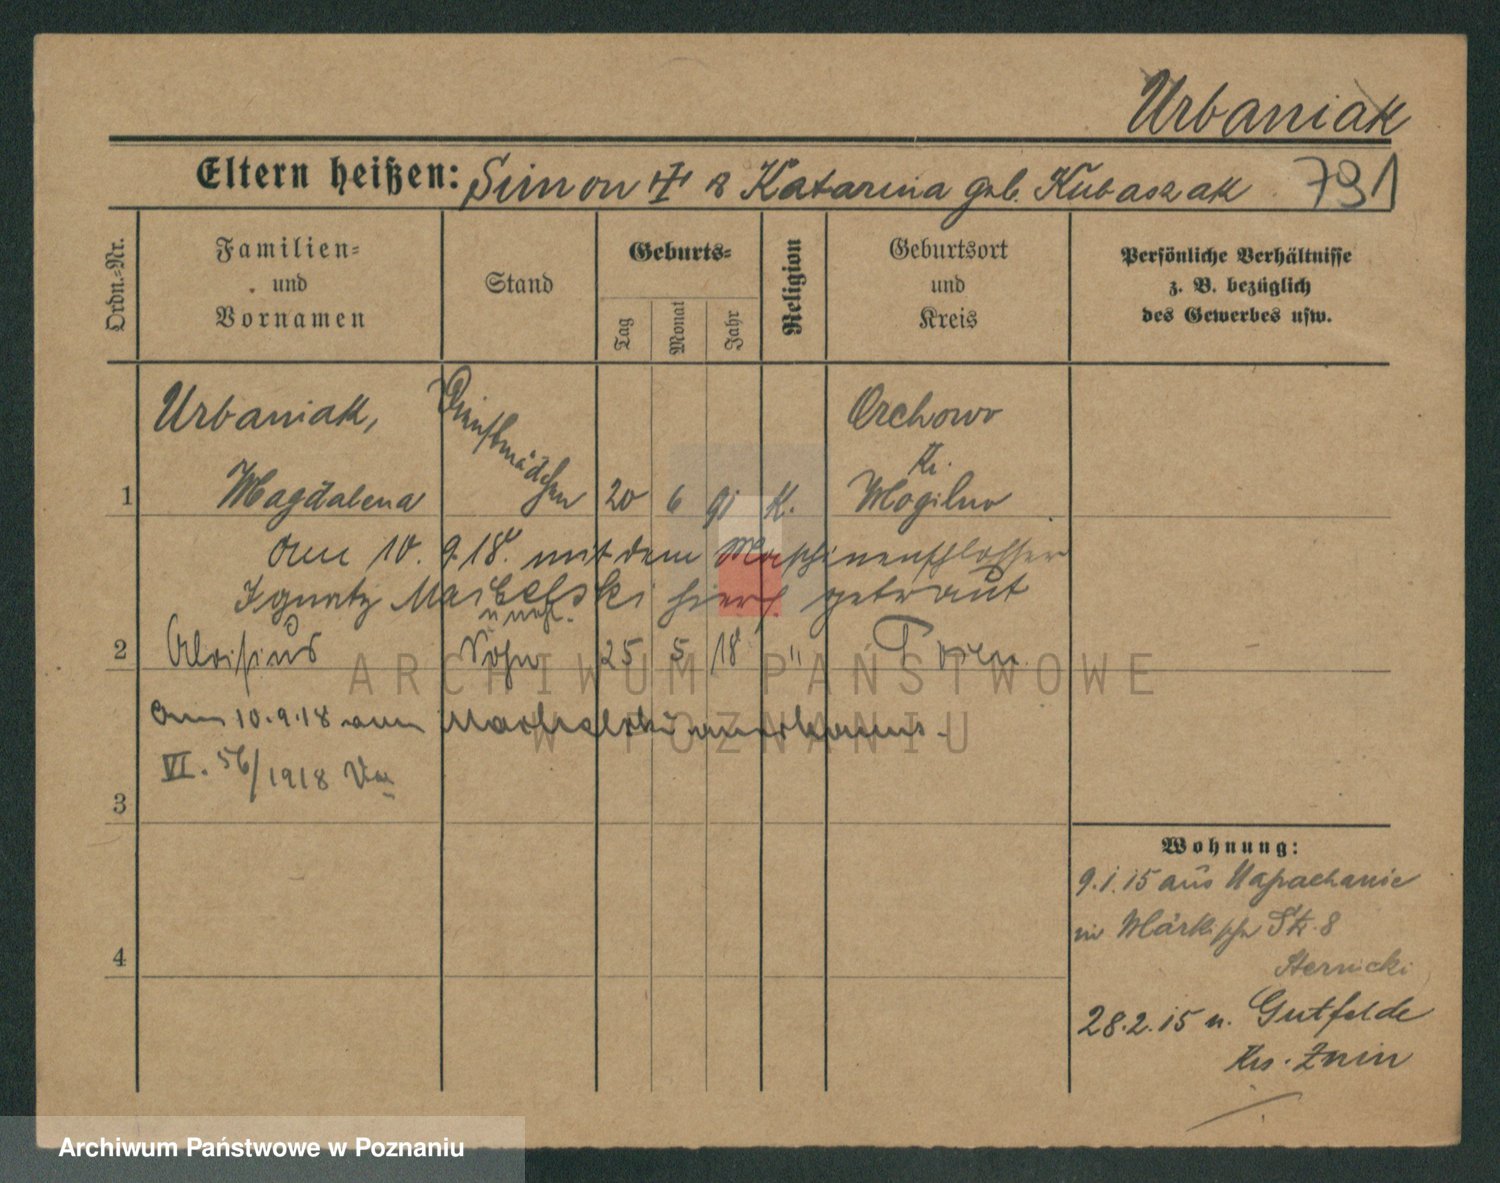 Urbaniak
Eltern heißen: Simon ‡ & Katarina geb. Kubaszak 791
Ordn.-Nr.
Familien-
und
Vornamen
Stand
Geburts-
Tag
Monat
Jahr
Religion
Geburtsort
und
Kreis
Persönliche Verhältnisse
z. B. bezüglich
des Gewerbes usw.
Urbaniak, Dienstmädchen Orchowo
Kr.
1 Magdalena 20 6 91 K. Mogilno
am 10. 9 18. mit dem Maschinenschlosser
Ignatz hier getraut
uneh.
2 Aloisius Sohn 25 5 18 " Posen
Am 10.9.18 vom anerkannt.
VI. 56/1918
3
4
Wohnung:
9.1.15 aus Napachanie
in Märkische Str. 8
Sternicki
28.2.15 n. Gutfelde
Krs. Znin
ARCHIWUM PAŃSTWOWE
W POZNANIU
Archiwum Państwowe w Poznaniu